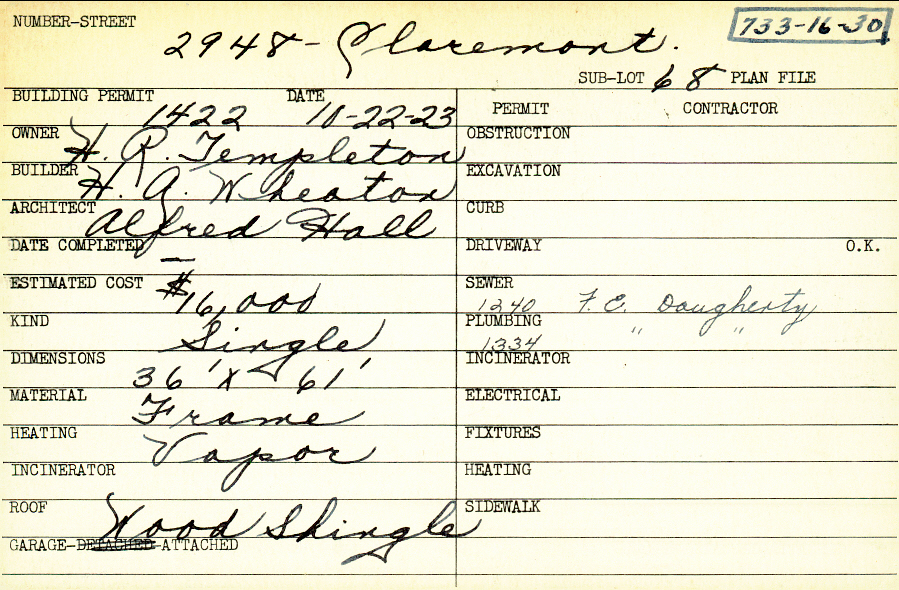 NUMBER-STREET
733-16-30
2948- Claremont.
SUB-LOT 68 PLAN FILE
BUILDING PERMIT 1422 DATE 10-22-23
PERMIT CONTRACTOR
OWNER H. R. Templeton
OBSTRUCTION
BUILDER H. A. Wheaton
EXCAVATION
ARCHITECT Alfred Hall
CURB
DATE COMPLETED —
DRIVEWAY O.K.
ESTIMATED COST $16,000
SEWER 1240 F. E. Daugherty
KIND Single
PLUMBING 1334 " "
DIMENSIONS 36' X 61'
INCINERATOR
MATERIAL Frame
ELECTRICAL
HEATING Vapor
FIXTURES
INCINERATOR
HEATING
ROOF Wood Shingle
SIDEWALK
GARAGE-DETACHED-ATTACHED